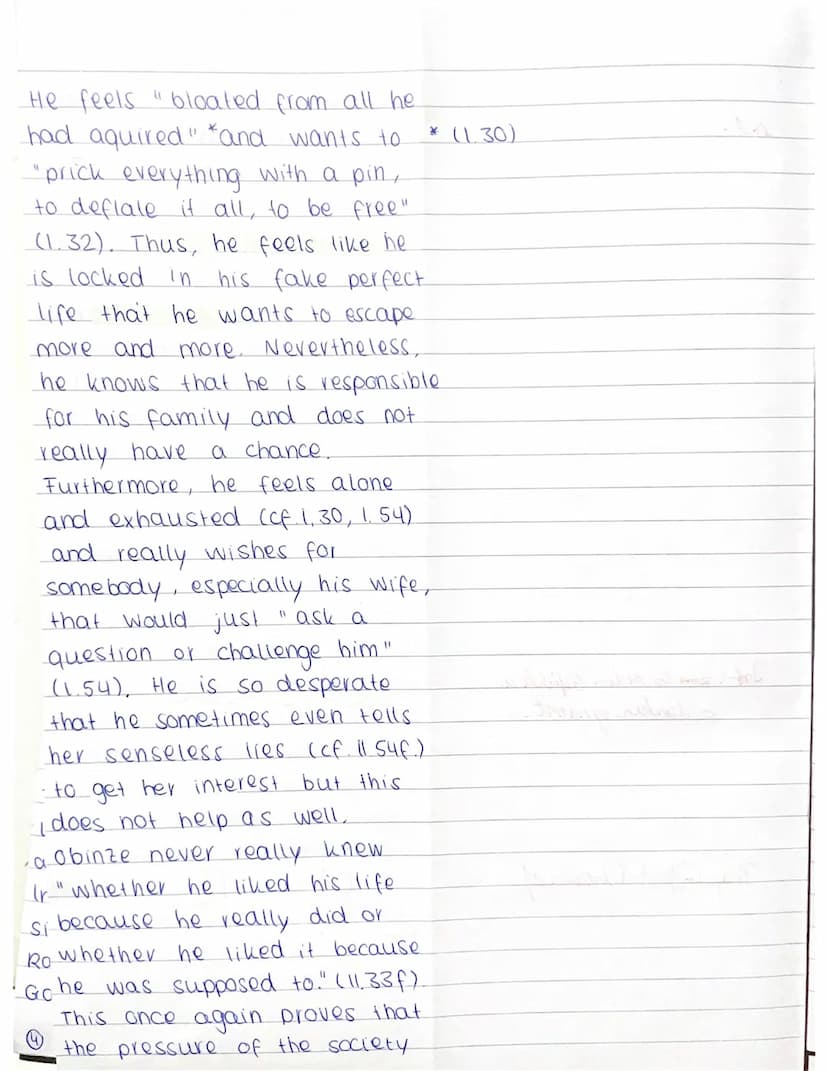 He feels "bloated from all he
had aquired" *and wants to * (l.30)
"prick everything with a pin,
to deflate it all, to be free"
(l.32). Thus, he feels like he
is locked in his fake perfect
life that he wants to escape
more and more. Nevertheless,
he knows that he is responsible
for his family and does not
really have a chance.
Furthermore, he feels alone
and exhausted (cf. l.30, l.54)
and really wishes for
somebody, especially his wife,
that would just "ask a
question or challenge him"
(l.54). He is so desperate
that he sometimes even tells
her senseless lies (cf. ll.54f.)
to get her interest but this
does not help as well.
a Obinze never really knew
Ir "whether he liked his life
Si because he really did or
Ro whether he liked it because
Go he was supposed to." (ll.33f).
This once again proves that
4 the pressure of the society